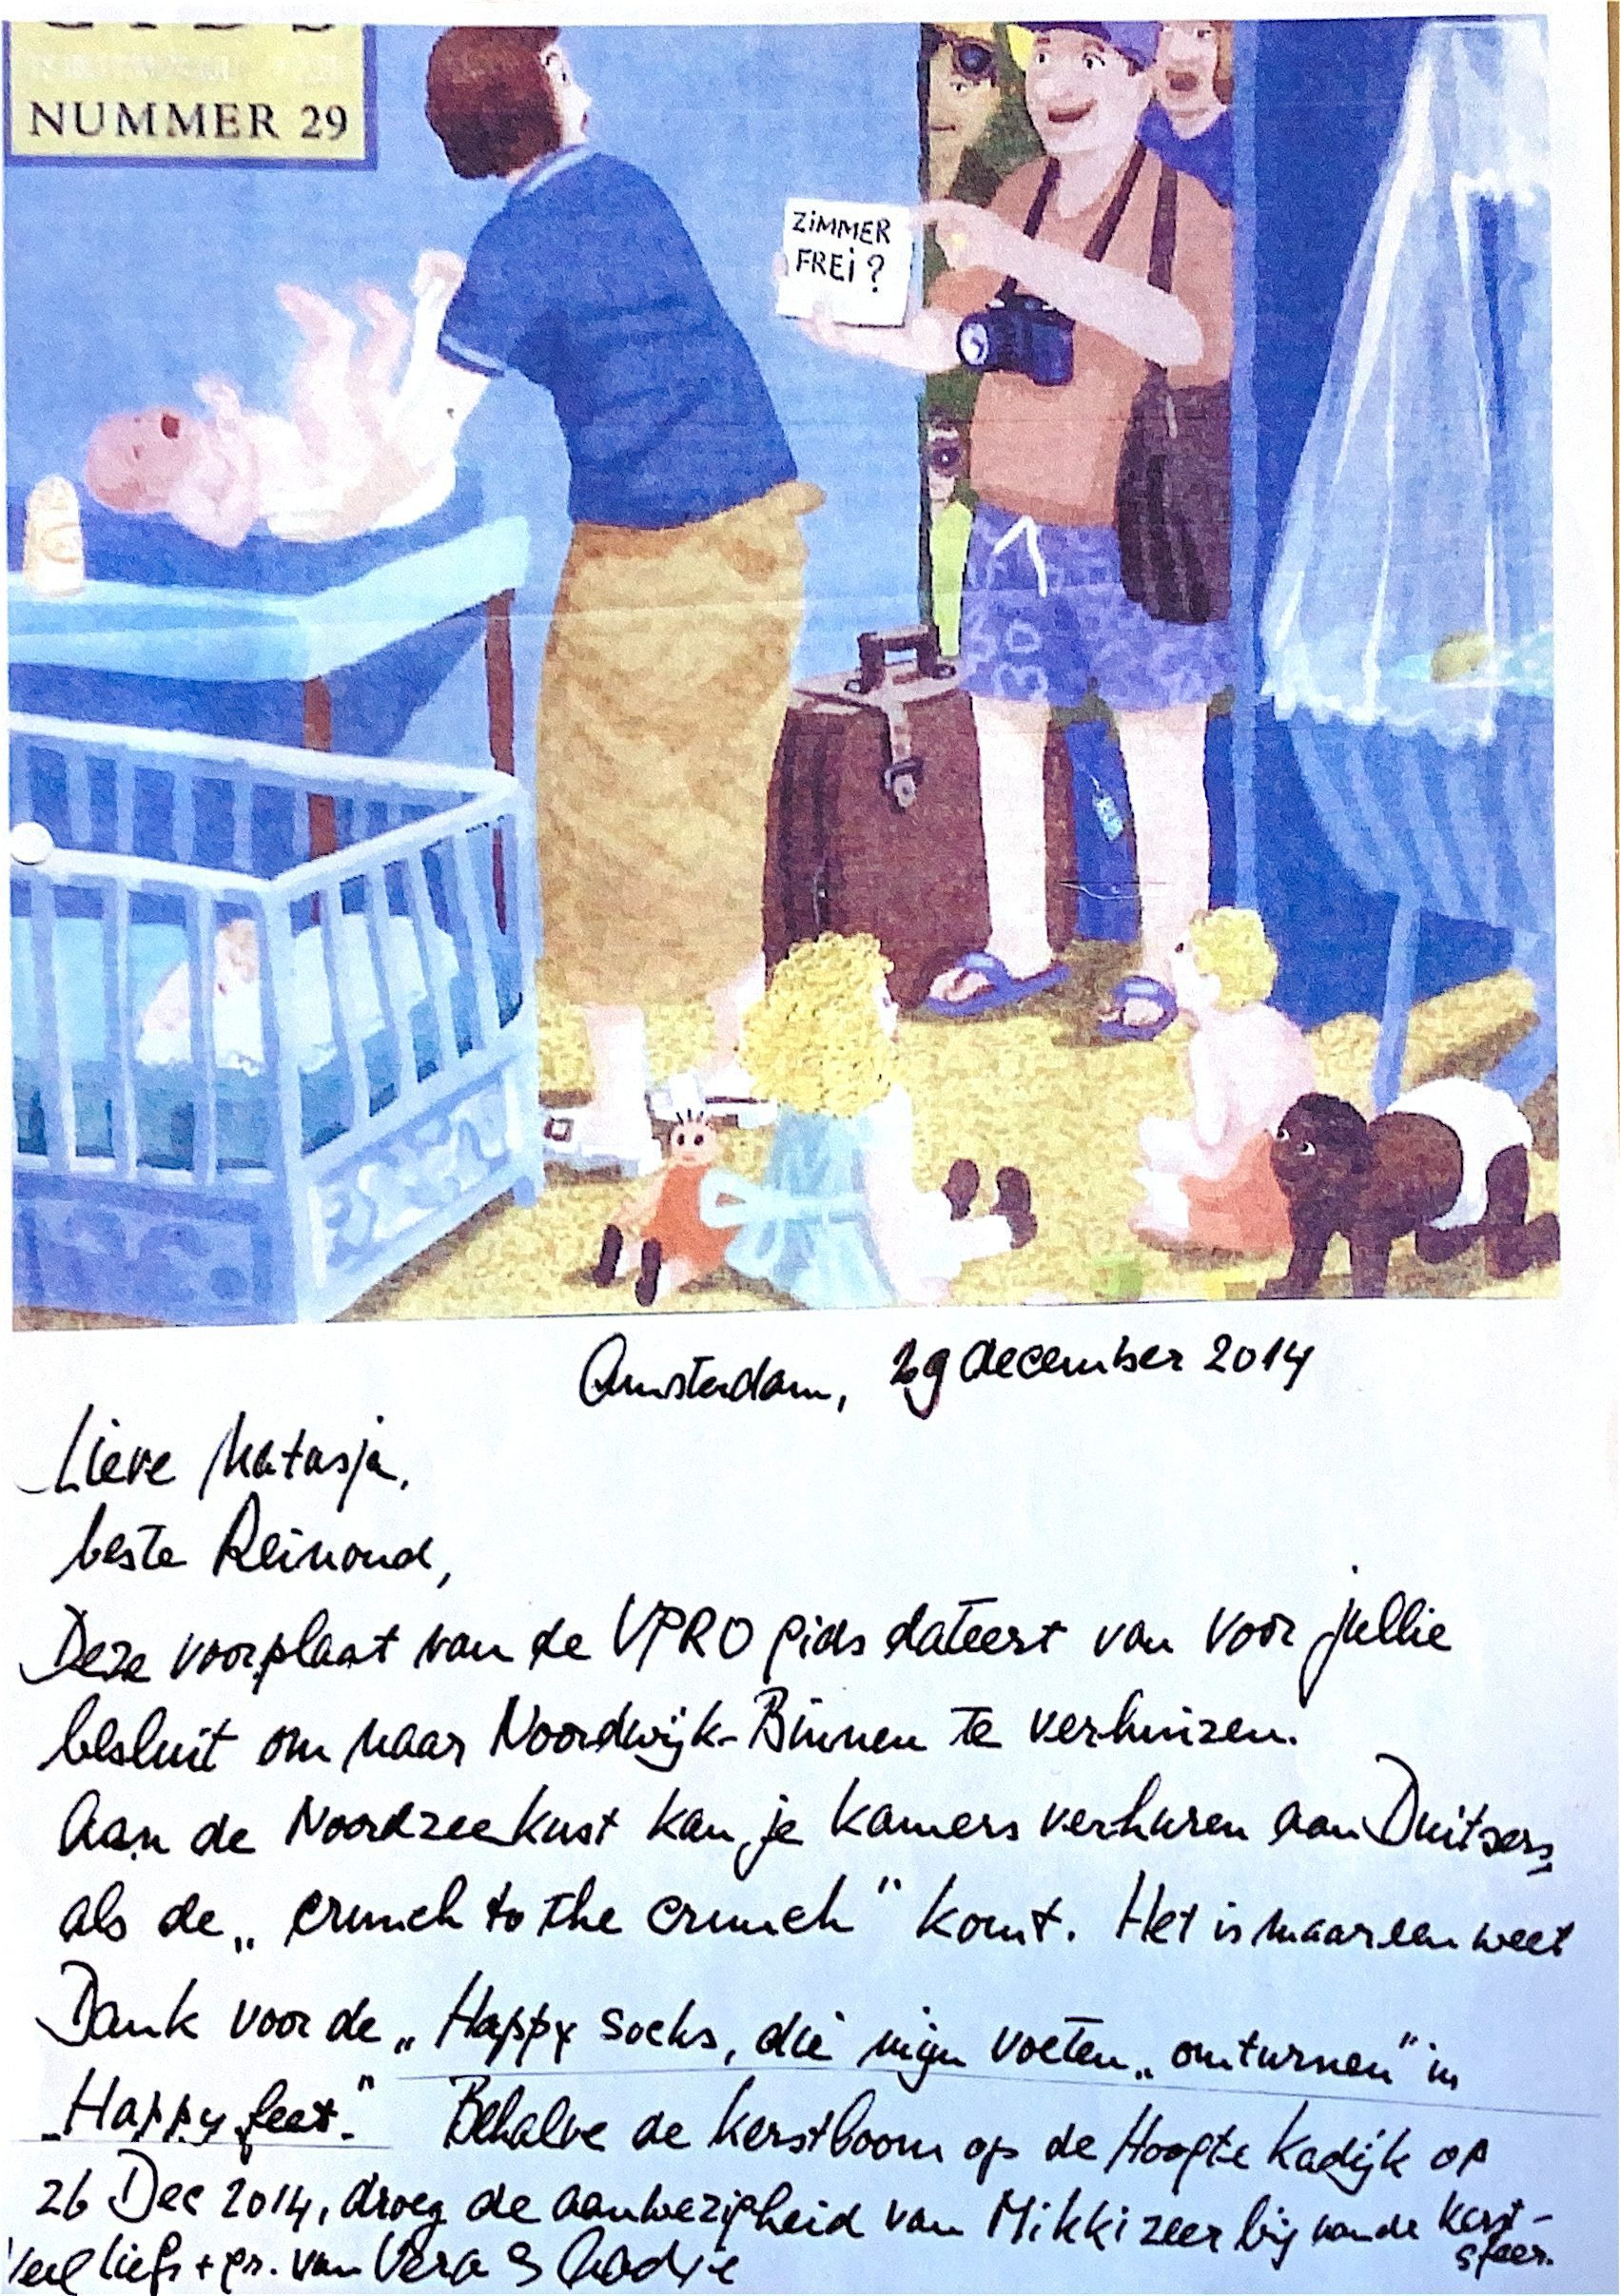 NUMMER 29
ZiMMER
FREi ?
Amsterdam, 29 december 2014
Lieve Natasja,
beste Reinoud,
Deze voorplaat van de VPRO gids dateert van voor jullie
besluit om naar Noordwijk-Binnen te verhuizen.
Aan de Noordzeekust kan je kamers verhuren aan Duitsers,
als de „crunch to the crunch" komt. Het is maar een weet
Dank voor de „Happy Socks, die mijn voeten „omturnen" in
„Happy feet." Behalve de kerstboom op de Hoogte Kadijk op
26 Dec 2014, droeg de aanwezigheid van Mikki zeer bij aan de kerst-
sfeer.
Veel liefs + gr. van Vera &